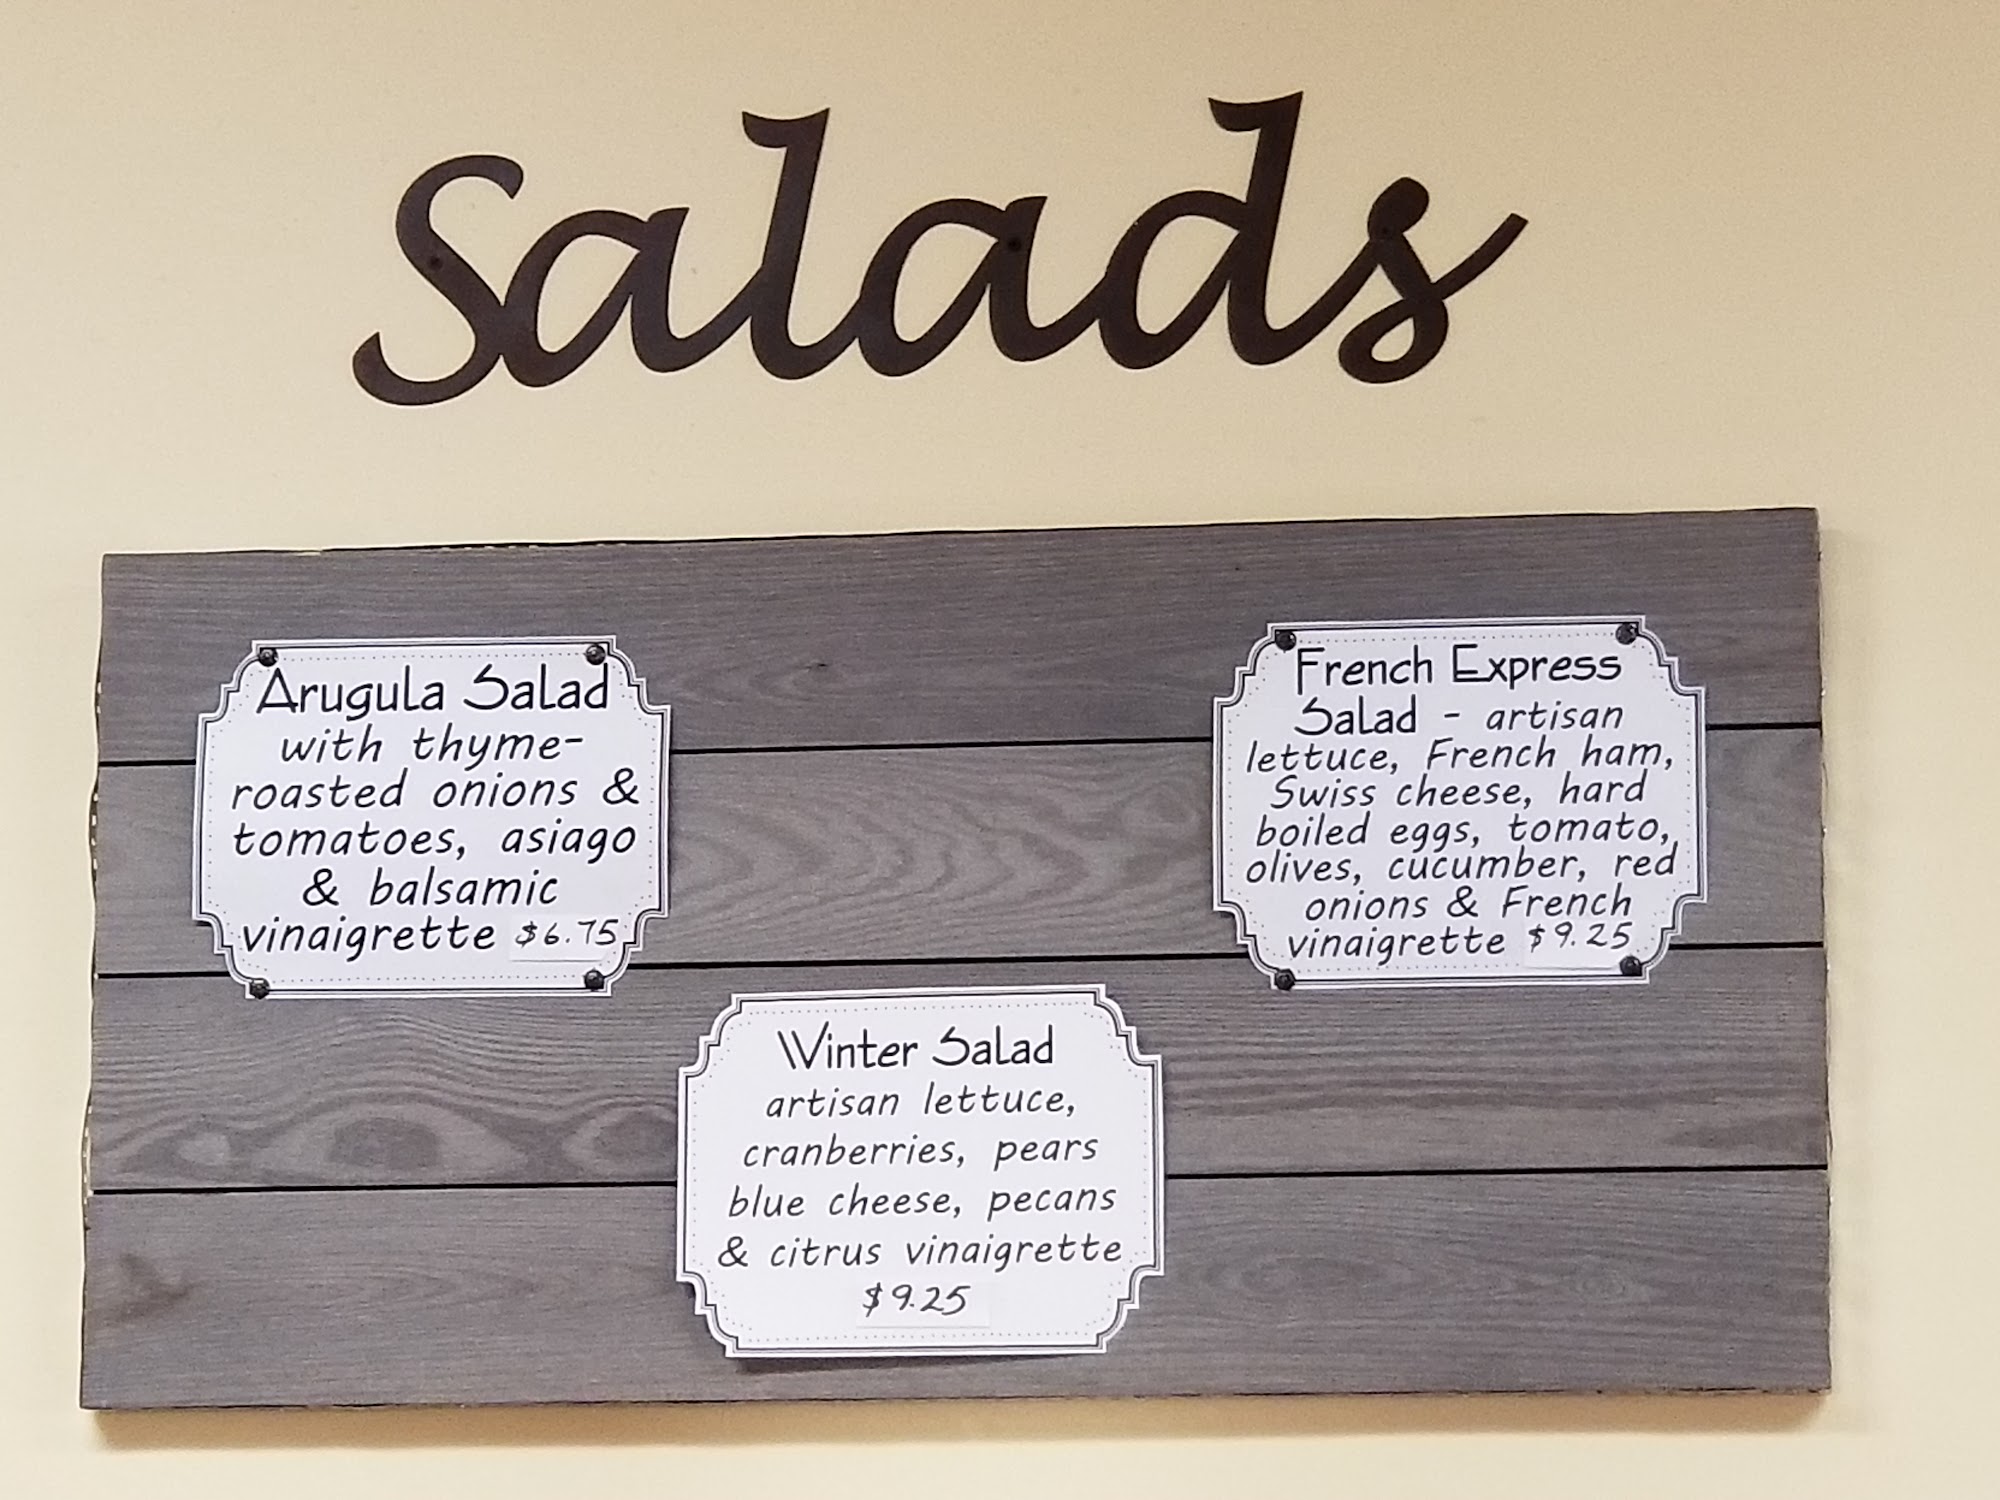 Salads
Arugula Salad
with thyme-
roasted onions &
tomatoes, asiago
& balsamic
vinaigrette $6.75
French Express
Salad - artisan
lettuce, French ham,
Swiss cheese, hard
boiled eggs, tomato,
olives, cucumber, red
onions & French
vinaigrette $9.25
Winter Salad
artisan lettuce,
cranberries, pears
blue cheese, pecans
& citrus vinaigrette
$9.25